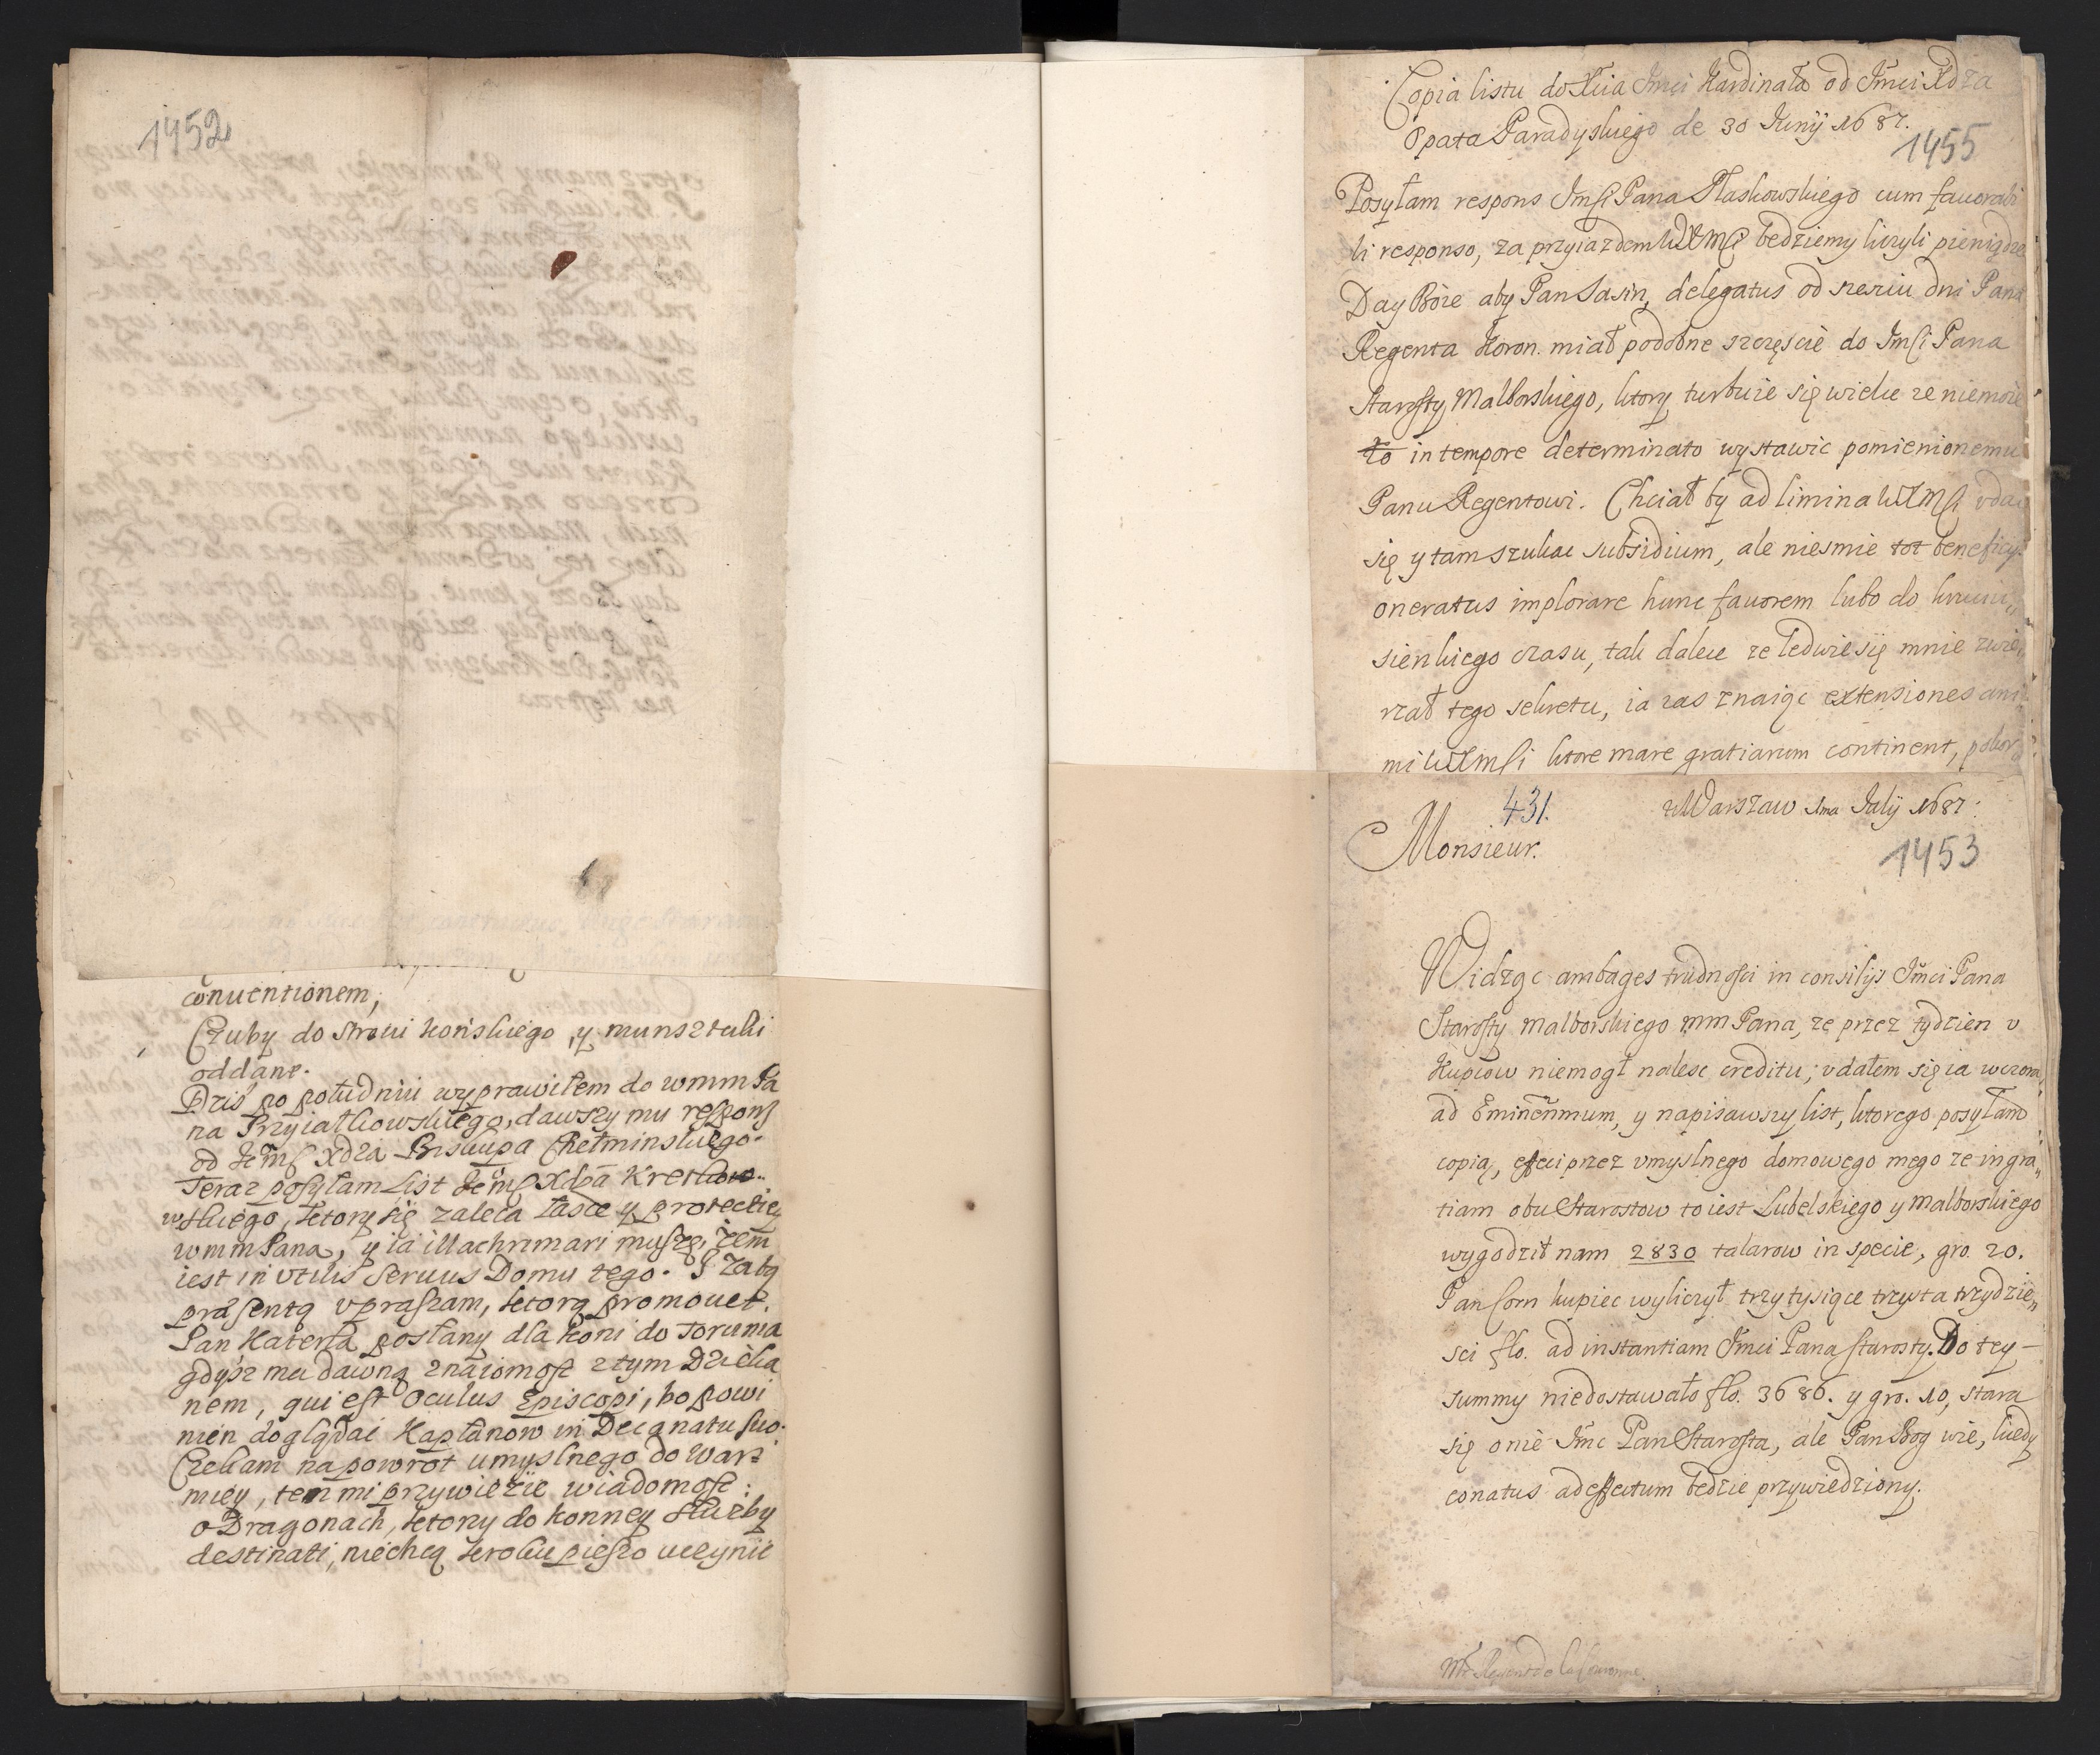 1452
conuentionem,
Czuby do stroiu końskiego, y munsztuki
oddane.
Dziś po południu wyprawiłem do wmm Pa
na Przyiałkowskiego, dawszy mu respons
od Jemsc Xdza Biskupa Chełminskiego.
Teraz posyłam List Jemsc Xdza Kretkow
wskiego, ktory się zaleca łasce y protectiey
wmm Pana, y ia illachrimari muszę, żem
iest inutilis Seruus Domu tego. Y za tą
præsentą upraszam, ktorą promouet.
Pan Katerla posłany dla koni do Torunia
gdysz ma dawną znaiomosc z tym Dzieka
nem, qui est Oculus Episcopi, bo powi
nien doglądać Kapłanow in Decanatu suo.
Czekam na powrot umyslnego do War
miey, ten mi przywiezie wiadomosc
o Dragonach, ktorzy do konney służby
destinati, niechcą kroku pieszo uczynić
Copia listu do Xcia Jmci Kardinała od Jmci Xdza
Opata Paradyskiego de 30 Junij 1687.
1455
Posyłam respons Jmsci Pana Płaskowskiego cum fauorabi
li responso, za przyiazdem WXMsci bedziemy liczyli pieniądze
Day Boże aby Pan Sasin, delegatus od szesciu dni Pana
Regenta Koron. miał podobne szczęscie do Jmsci Pana
Starosty Malborskiego, ktory turbuie się wielce ze niemoze
to in tempore determinato wystawic pomienionemu
Panu Regentowi. Chciał by ad limina WXMsci udac
się y tam szukac subsidium, ale niesmie tot beneficys
oneratus implorare hunc fauorem lubo do krociu
sienkiego czasu, tak dalece ze ledwie się mnie zwie
rzał tego sekretu, ia zas znaiąc extensiones ani
mi WXMsci ktore mare gratiarum continent, pokor
431.
w Warszaw 1ma Julij 1687.
Monsieur.
1453
Widząc ambages trudnosci in consilijs Jmci Pana
Starosty Malborskiego mm Pana, ze przez tydzien u
Kupcow niemogł nalesc creditu, udałem się ia wczora
ad Eminenmum, y napisawszy list, ktorego posyłam
copią, effeci przez umyslnego domowego mego ze in gra
tiam obu Starostow to iest Lubelskiego y Malborskiego
wygodził nam 2830 talarow in specie, gro. 20.
Pan Sorn kupiec wyliczył trzy tysiące trzysta trzydzie
sci flo. ad instantiam Jmci Pana Starosty. Do tey
summy niedostawało flo. 3686. y gro. 10, stara
się o nie Jmc Pan Starosta, ale Pan Bog wie, kiedy
conatus ad effectum bedzie przywiedziony.
Mr Regent de la Couronne.